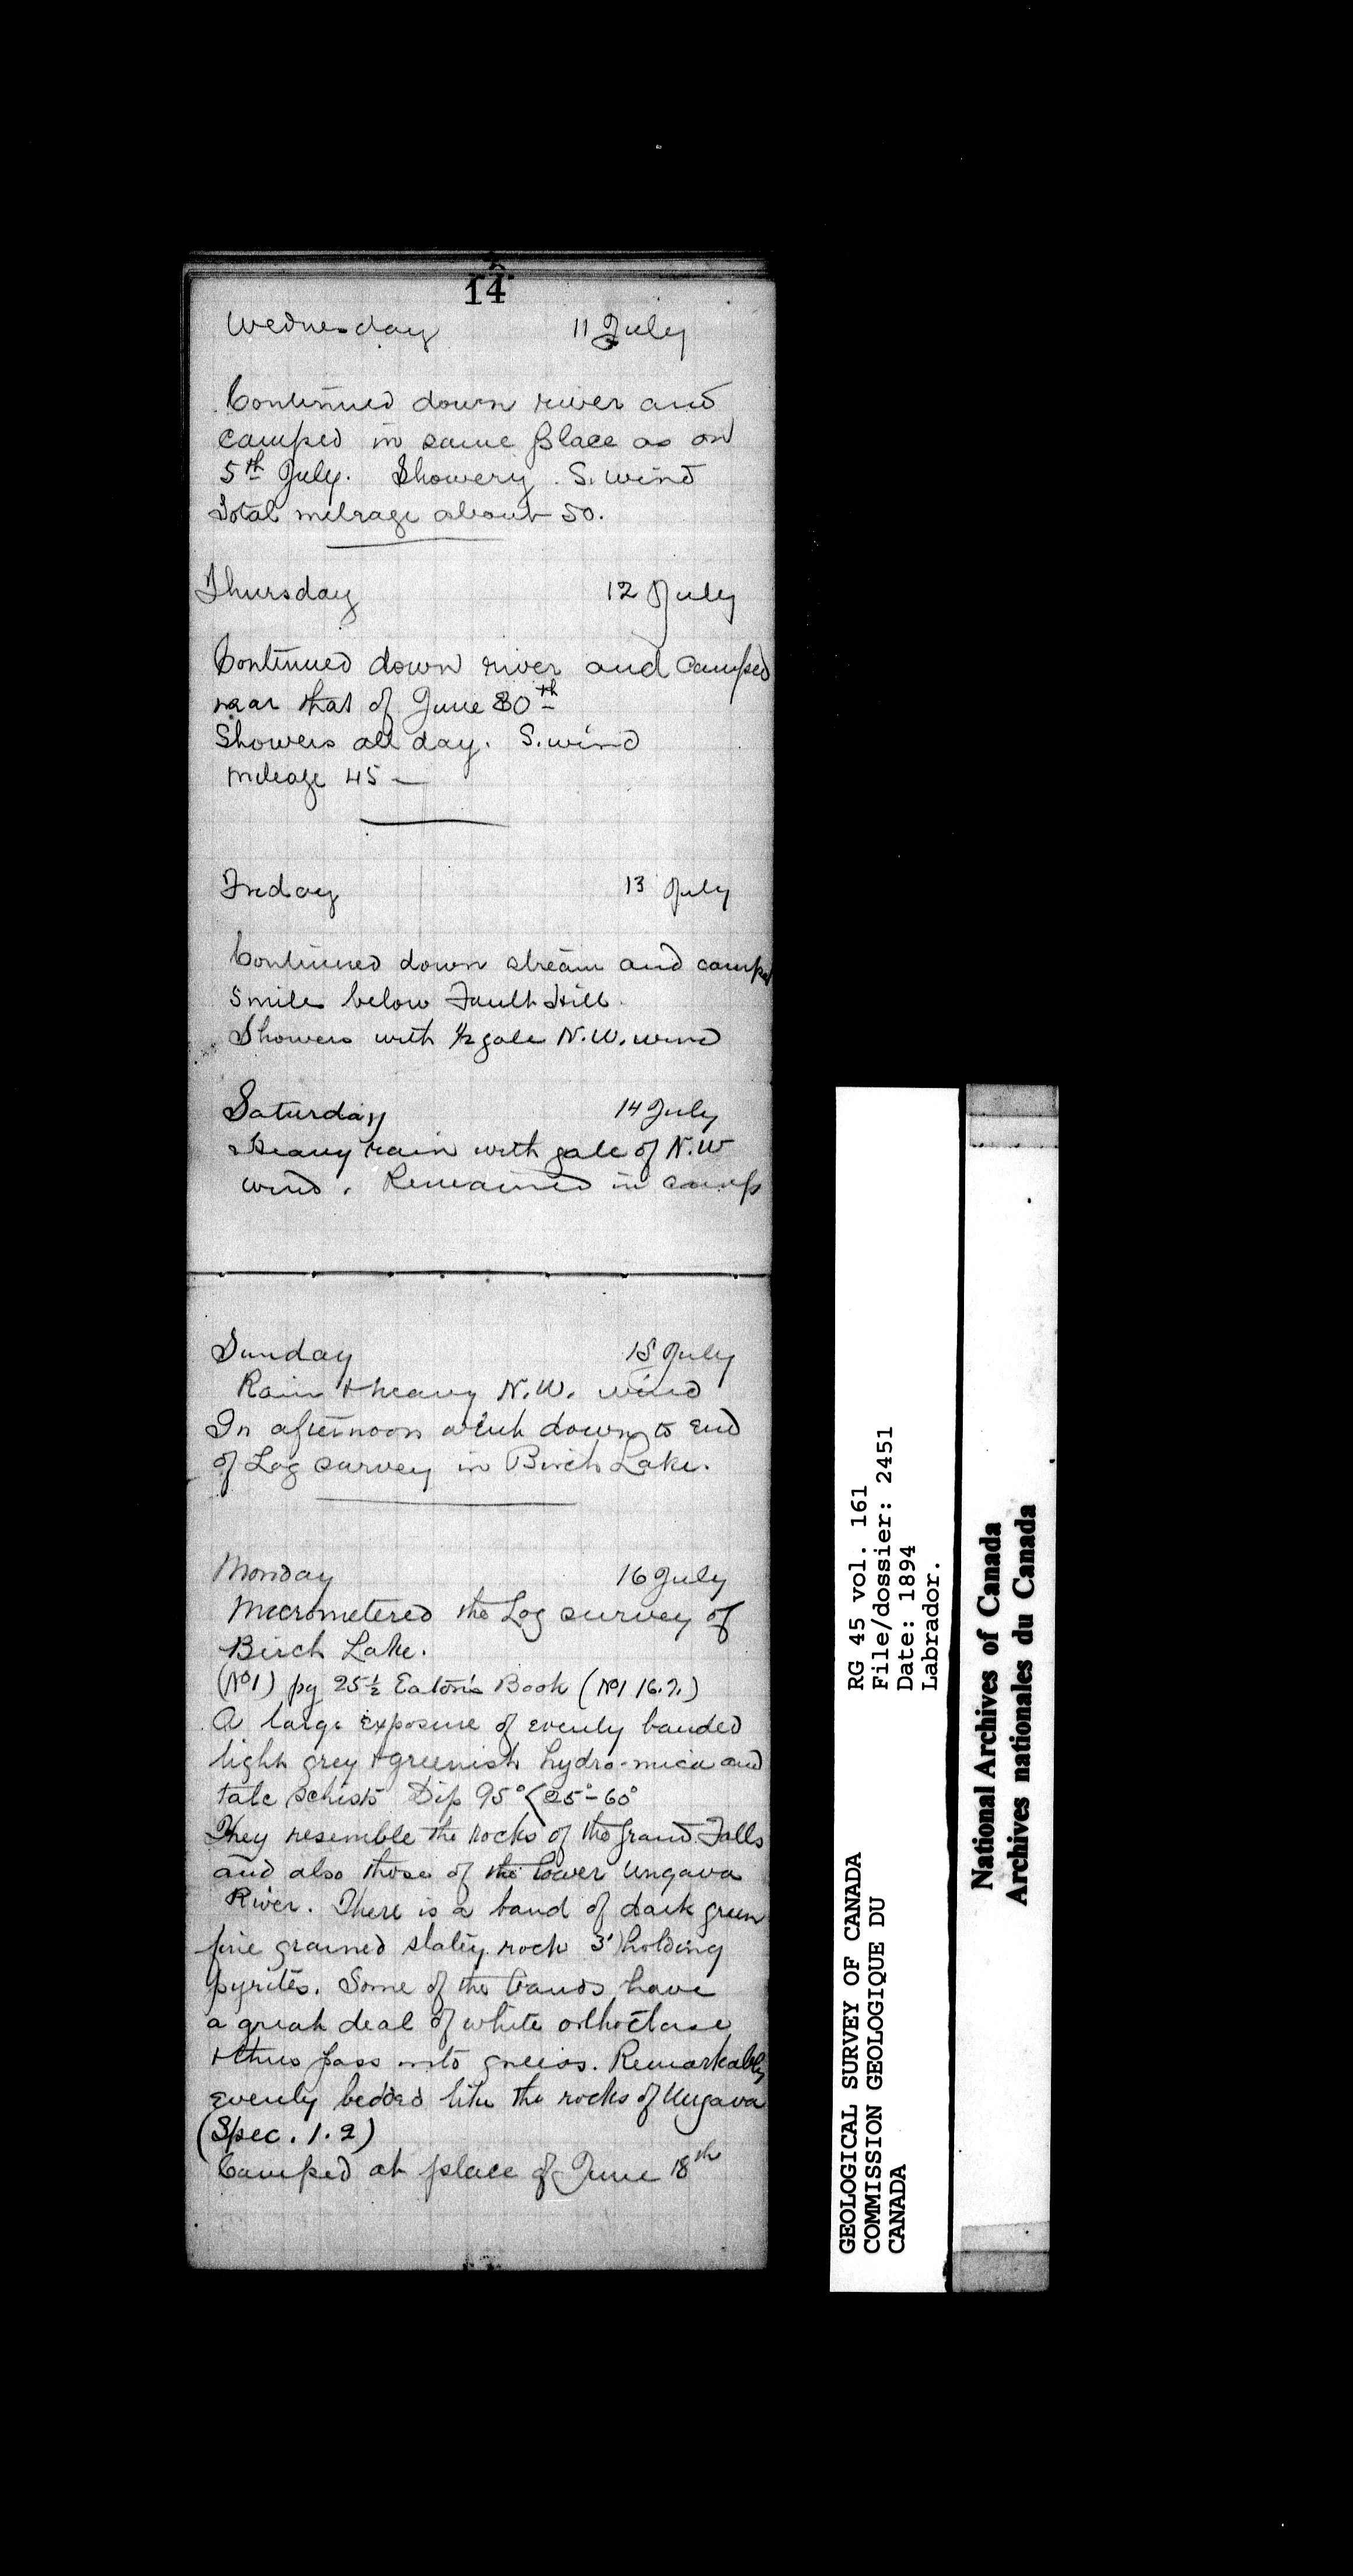 14
Wednesday 11 July
Continued down river and
camped in same place as on
5th July. Showery S. wind
Total milrage about 50.
Thursday 12 July
Continued down river and camped
near that of June 30th
Showers all day. S. wind
Mileage 45 —
Friday 13 July
Continued down stream and camped
5 miles below Fault Hill.
Showers with 1/2 gale N.W. wind
Saturday 14 July
Heavy rain with gale of N.W
wind. Remained in camp
Sunday 15 July
Rain + heavy N.W. wind
In afternoon went down to end
of Log survey in Birch Lake.
Monday 16 July
Micrometered the Log survey of
Birch Lake.
(No1) pg 25½ Eaton's Book (No1 16.7.)
A large exposure of evenly banded
light grey + greenish hydro-mica and
talc schists Dip 95° < 25°-60°
They resemble the rocks of the Grand Falls
and also those of the lower Ungava
River. There is a band of dark green
fine grained slaty rock 3') holding
pyrites. Some of the bands have
a great deal of white orthoclase
+ thus pass into gneiss. Remarkably
evenly bedded like the rocks of Ungava
(Spec. 1. 2)
Camped at place of June 18th
GEOLOGICAL SURVEY OF CANADA
COMMISSION GEOLOGIQUE DU
CANADA
RG 45 vol. 161
File/dossier: 2451
Date: 1894
Labrador.
National Archives of Canada
Archives nationales du Canada